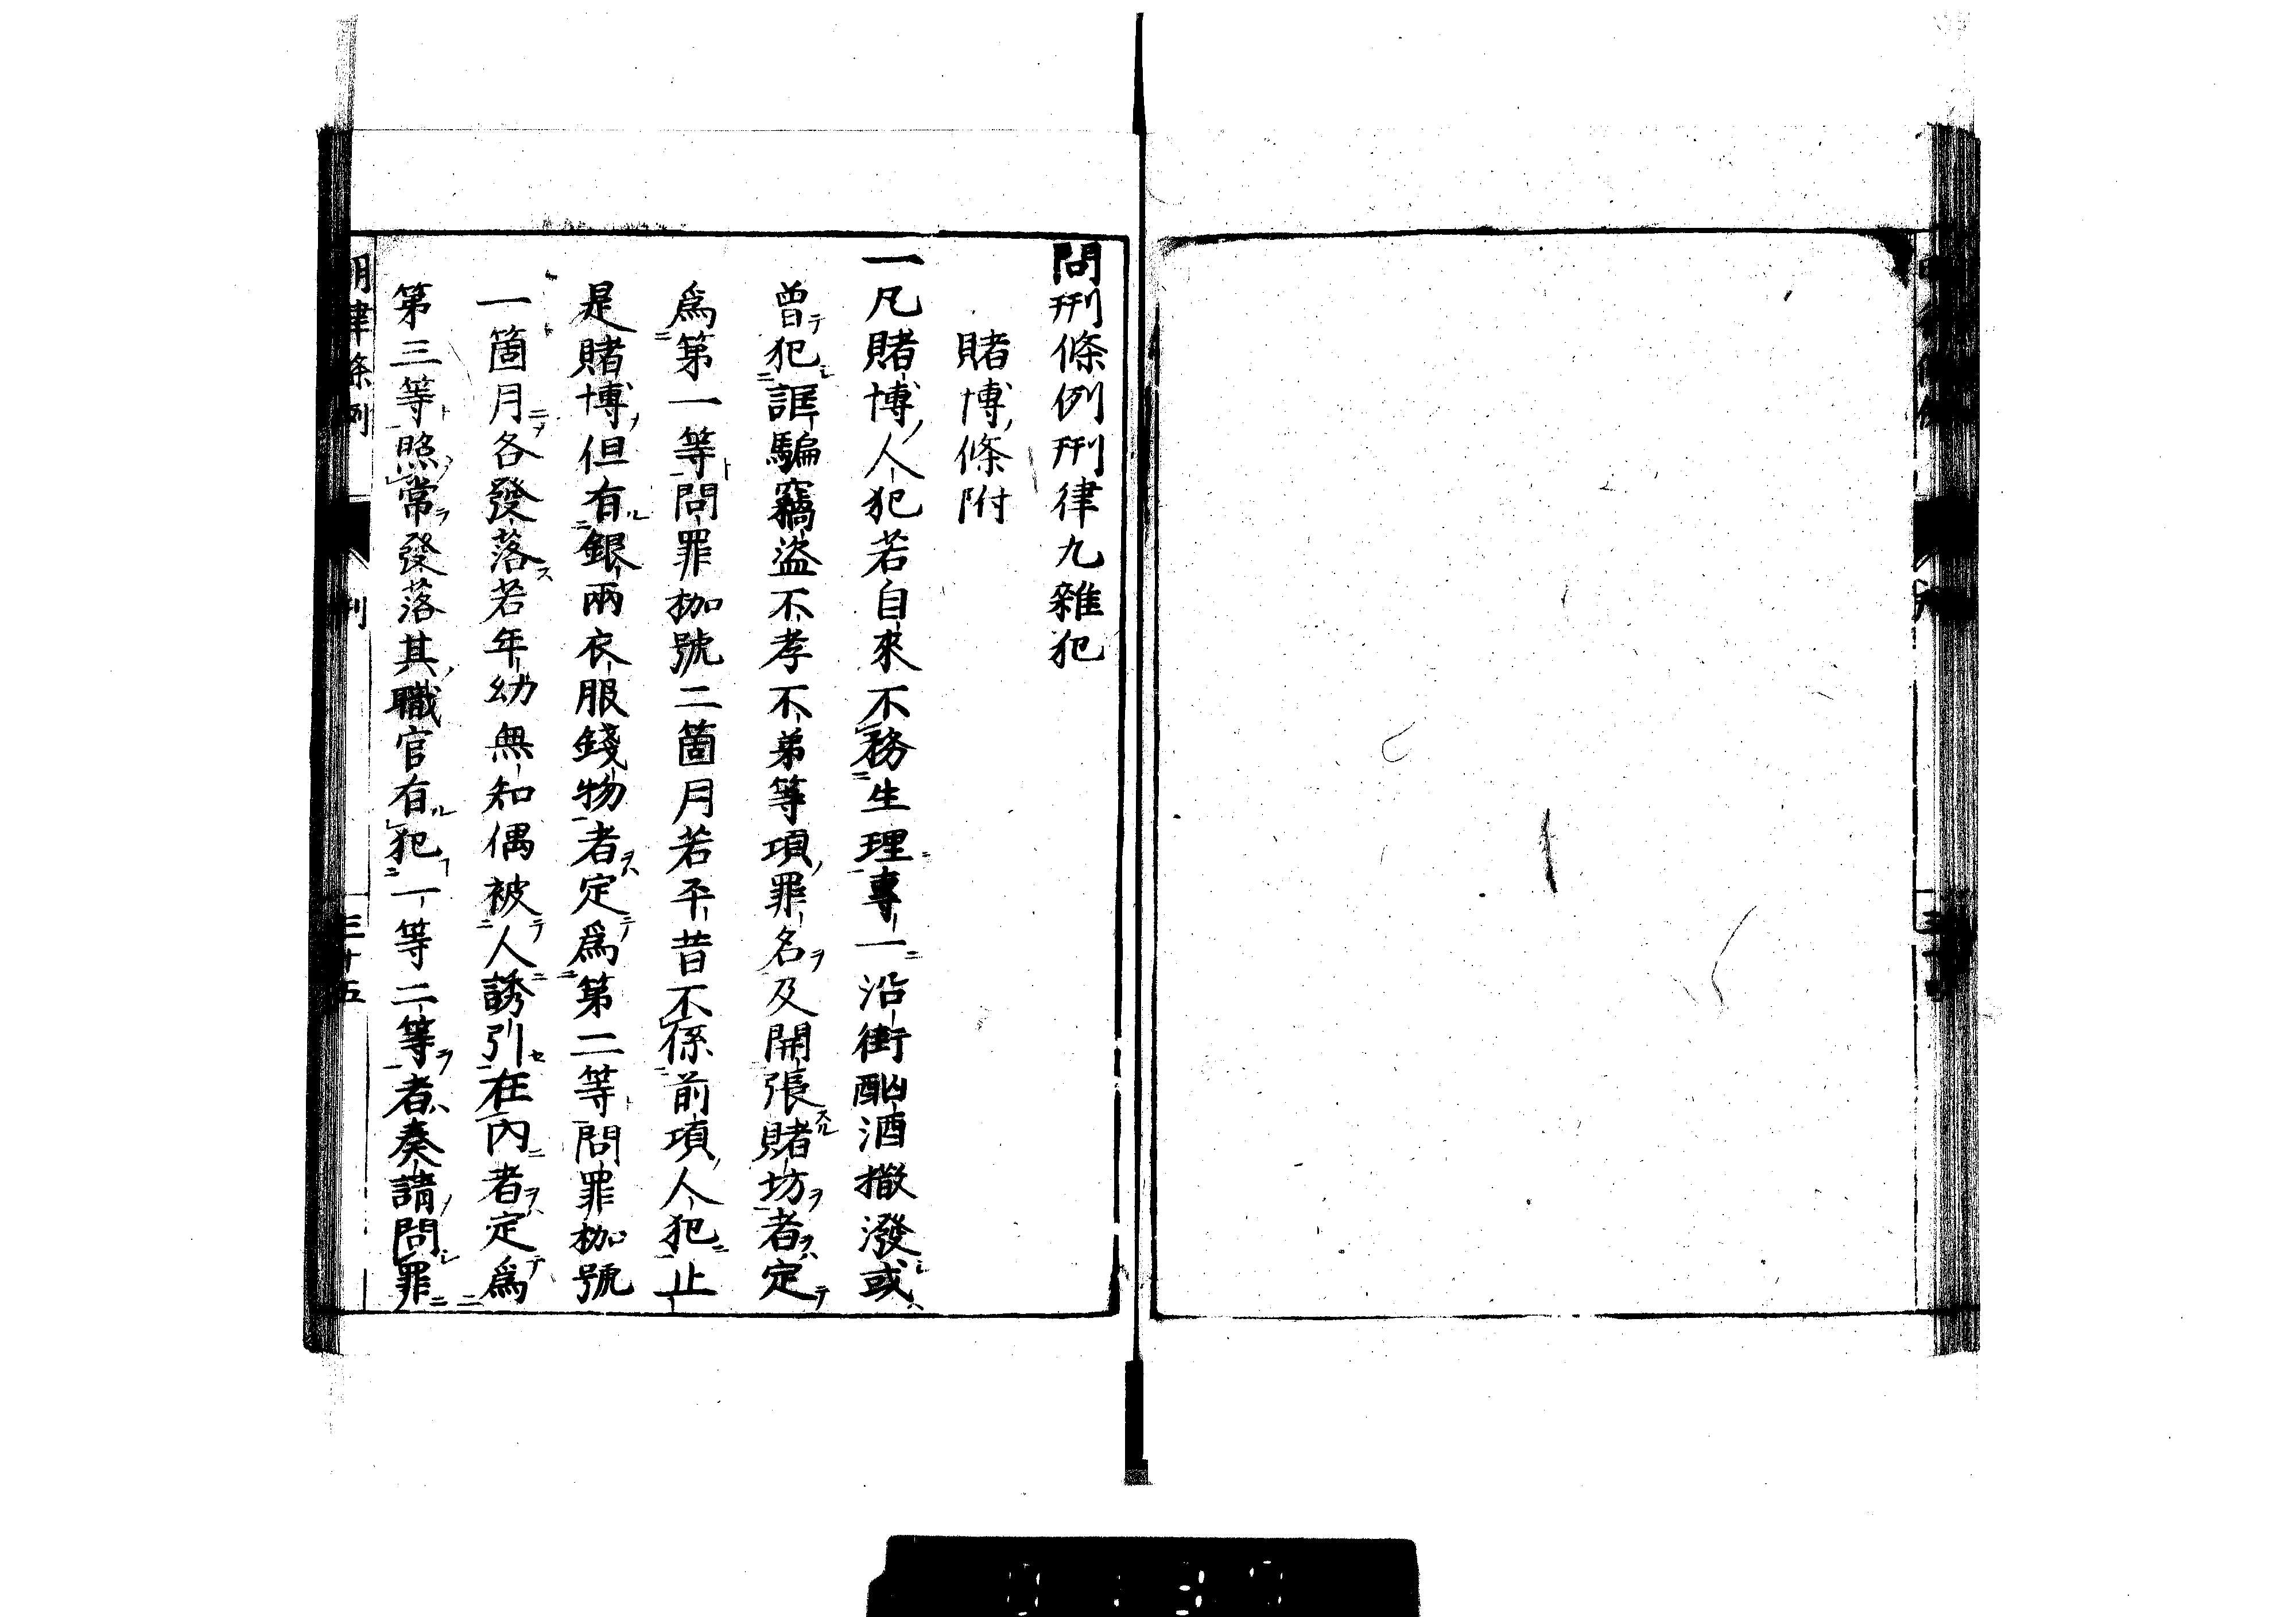 問刑條例刑律九雜犯
賭博條附
一凡賭博人犯若自來不務生理專一沿街酗酒撒潑或
曾犯誆騙竊盜不孝不弟等項罪名及開張賭坊者定
爲第一等問罪枷號二箇月若平昔不係前項人犯止
是賭博但有銀兩衣服錢物者定爲第二等問罪枷號
一箇月各發落若年幼無知偶被人誘引在內者定爲
第三等照常發落其職官有犯一等二等者奏請問罪
明律條例 刑 三十五